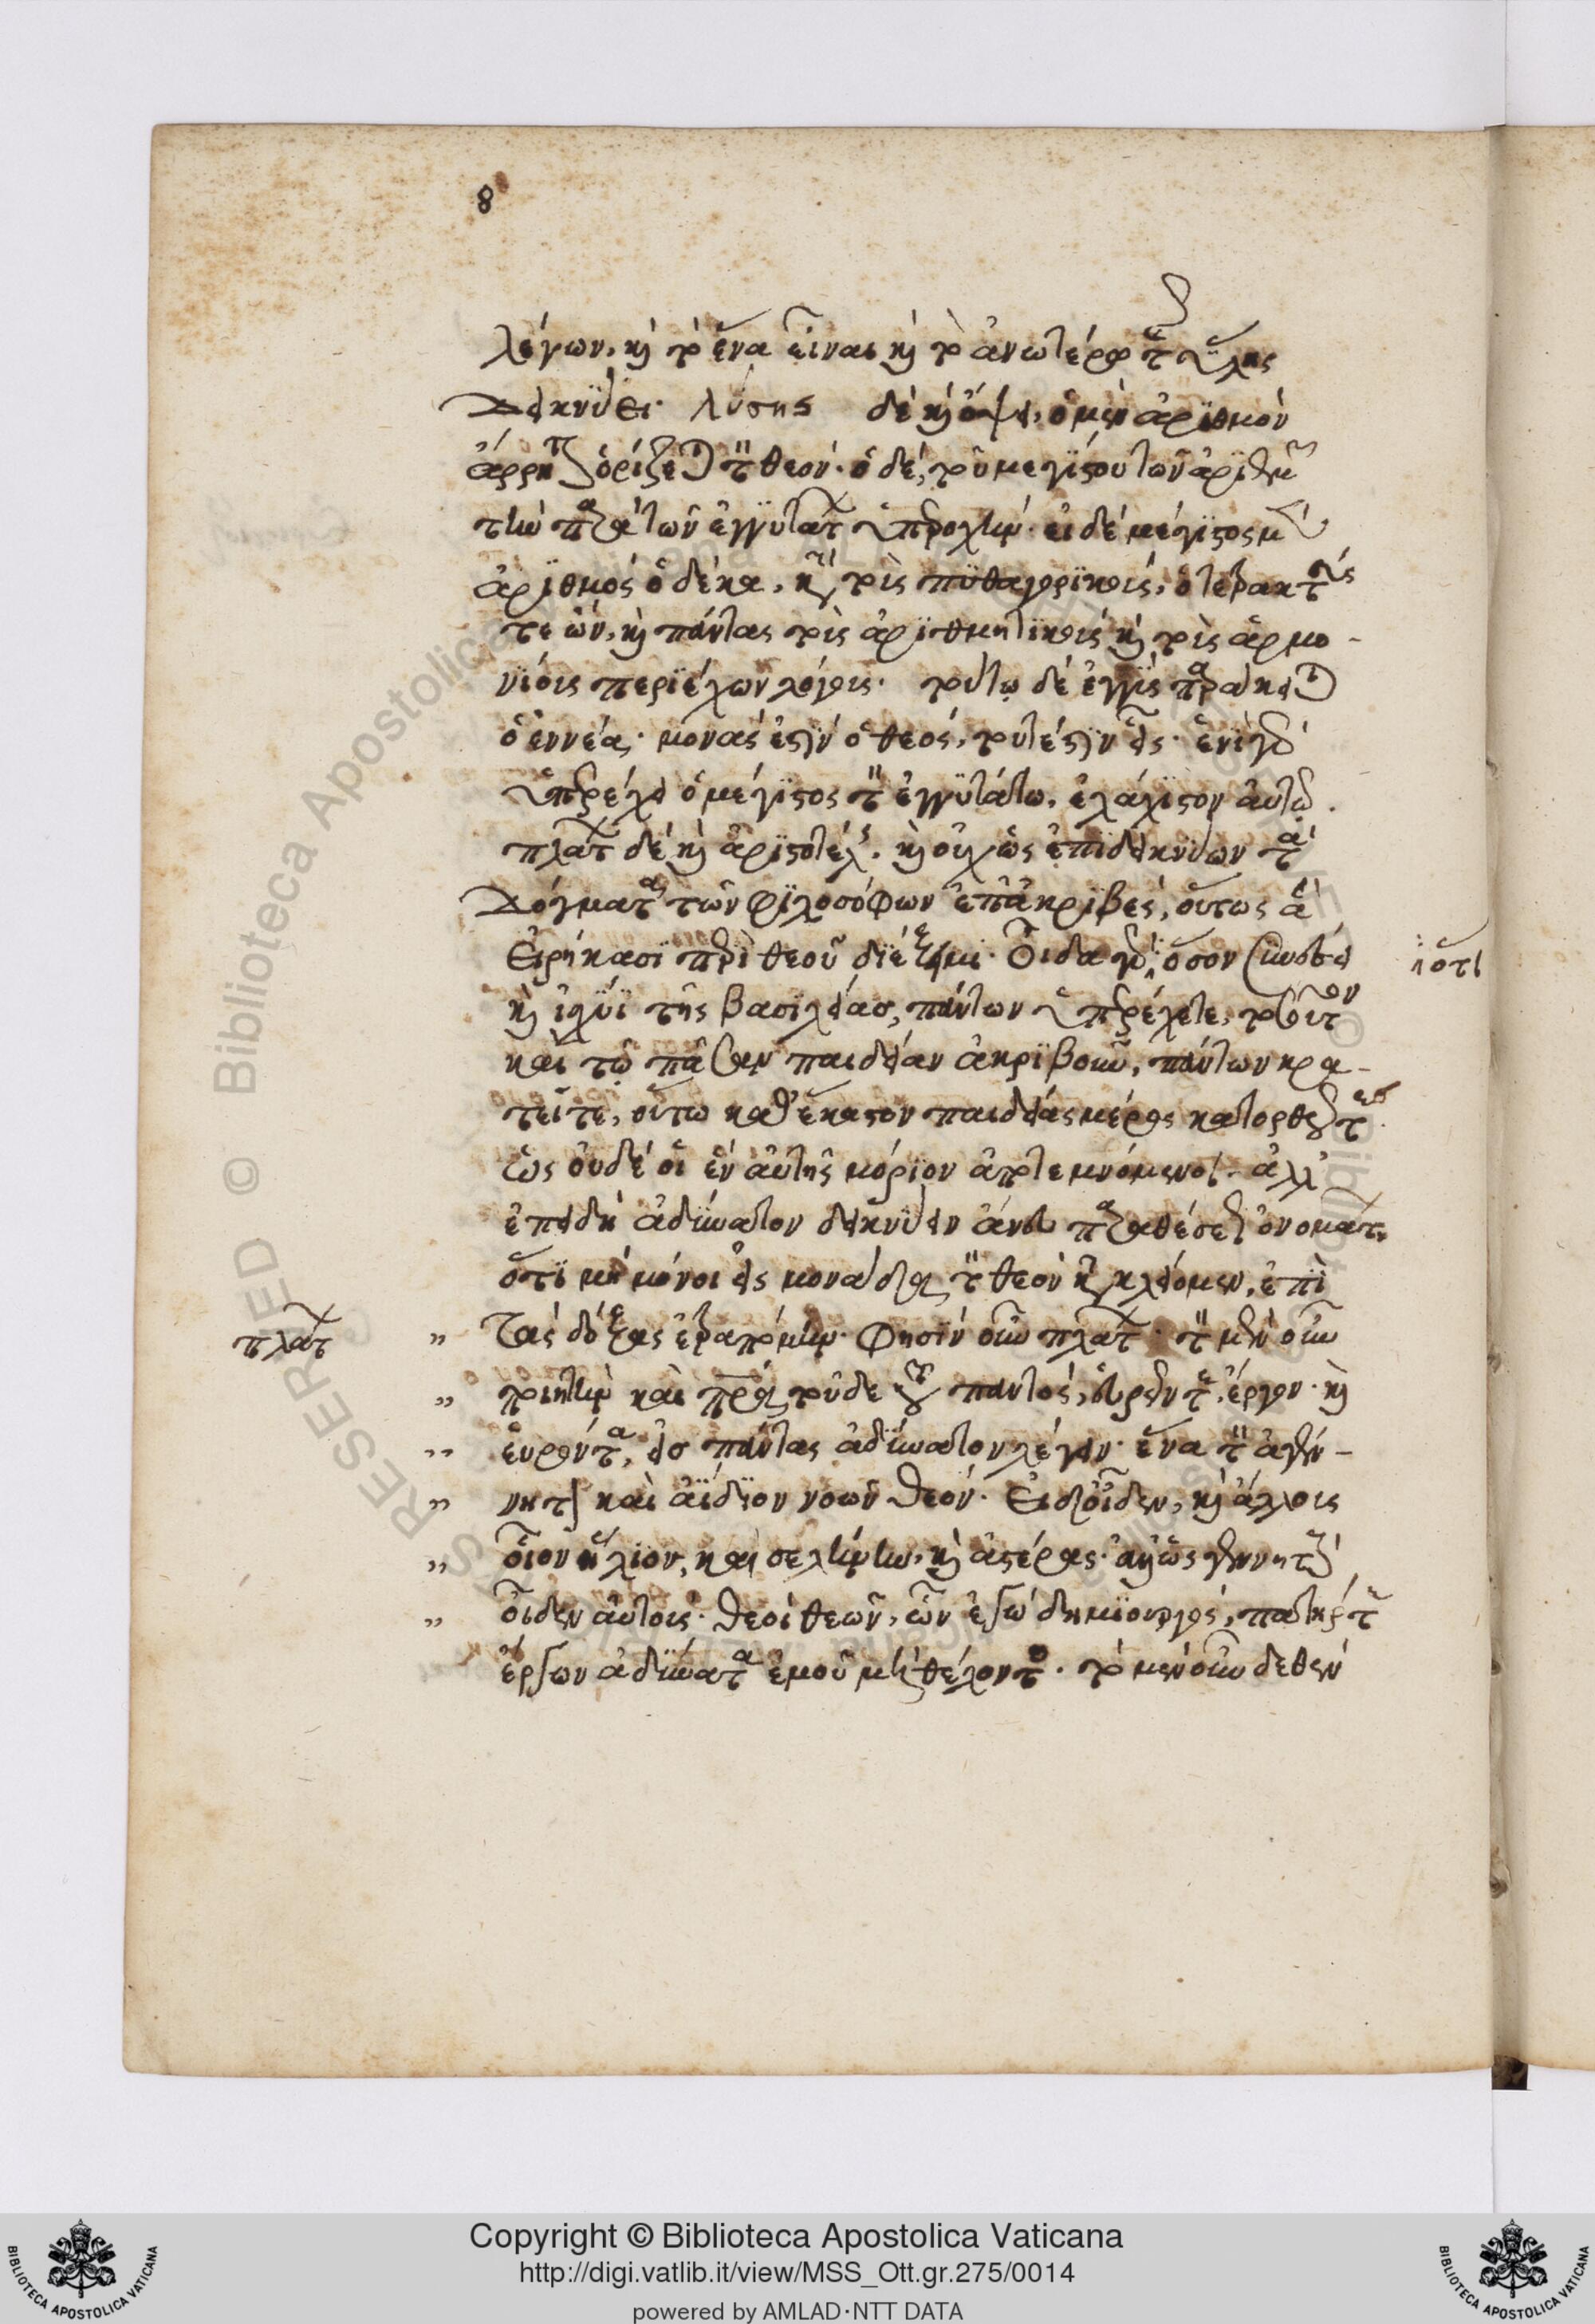 8
λέγων, καὶ τὸ ἕνα εἶναι καὶ τὸ ἀνωτέρω τῆς ὕλης
δεικνύει. λύσης δὲ καὶ ὄψει, ὁ μὲν ἀριθμὸν
ἄρρητον ὁρίζεται τὸν θεόν. ὁ δὲ, τοῦ μεγίστου τῶν ἀριθμῶν
τὴν παρὰ τῶν ἐγγυτάτω ὑπεροχήν. εἰ δὲ μέγιστος μὲν
ἀριθμὸς ὁ δέκα, κατὰ τοὺς πυθαγορικούς, ὁ τετρακτύς
τε ὢν, καὶ πάντας τοὺς ἀριθμητικοὺς καὶ τοὺς ἁρμο-
νίους περιέχων λόγους. τούτῳ δὲ ἐγγὺς παράκειται
ὁ ἐννέα. μονάς ἐστιν ὁ θεός, τουτέστιν εἷς. ἑνὶ γὰρ
ὑπερέχει ὁ μέγιστος τὸν ἐγγυτάτω, ἐλάχιστον αὐτῷ.
πλάτων δὲ καὶ ἀριστοτέλης. καὶ οὐχ ὡς ἐπιδεικνύων τὰ
δόγματα τῶν φιλοσόφων ἐπ' ἀκριβὲς, οὕτως ἃ
εἰρήκασι περὶ θεοῦ διέξειμι. οἶδα γὰρ, ὅσον συνέσει
ἢ ὅτι
καὶ ἰσχύι τῆς βασιλείας, πάντων ὑπερέχετε, τοσοῦτον
καὶ τῷ πᾶσαν παιδείαν ἀκριβοῦν, πάντων κρα-
τεῖτε, οὕτω καθ' ἕκαστον παιδείας μέρος κατορθοῦντες
ὡς οὐδὲ οἱ ἓν αὐτῆς μόριον ἀποτεμνόμενοι. ἀλλ'
ἐπειδὴ ἀδύνατον δεικνύειν ἄνευ παραθέσεως ὀνομάτων
ὅτι μὴ μόνοι εἰς μονάδα τὸν θεὸν κατακλείομεν, ἐπὶ
πλάτ
τὰς δόξας ἐτραπόμην. φησὶν οὖν πλάτων. τὸν μὲν οὖν
ποιητὴν καὶ πατέρα τοῦδε τοῦ παντός, εὑρεῖν τε ἔργον. καὶ
εὑρόντα, εἰς πάντας ἀδύνατον λέγειν. ἕνα τὸν ἀγέν-
νητον καὶ ἀίδιον νοῶν θεόν. εἰ δ' οἶδεν, καὶ ἄλλους
οἷον ἥλιον, καὶ σελήνην, καὶ ἀστέρας. ἀλλ' ὡς γεννητοὺς
οἶδεν αὐτούς. θεοὶ θεῶν, ὧν ἐγὼ δημιουργός, πατήρ τε
ἔργων ἀδύνατα ἐμοῦ μὴ θέλοντος. τὸ μὲν οὖν δεθὲν
Copyright © Biblioteca Apostolica Vaticana
http://digi.vatlib.it/view/MSS_Ott.gr.275/0014
powered by AMLAD·NTT DATA